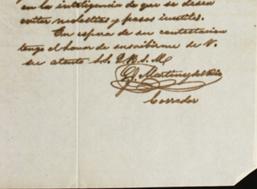 en la inteligencia de que se desea
evitar molestias y pasos inutiles.
En espera de su contestacion
tengo el honor de suscribirme de V.
su atento S.S. Q.B.S.M.
Martinez del
Corredor